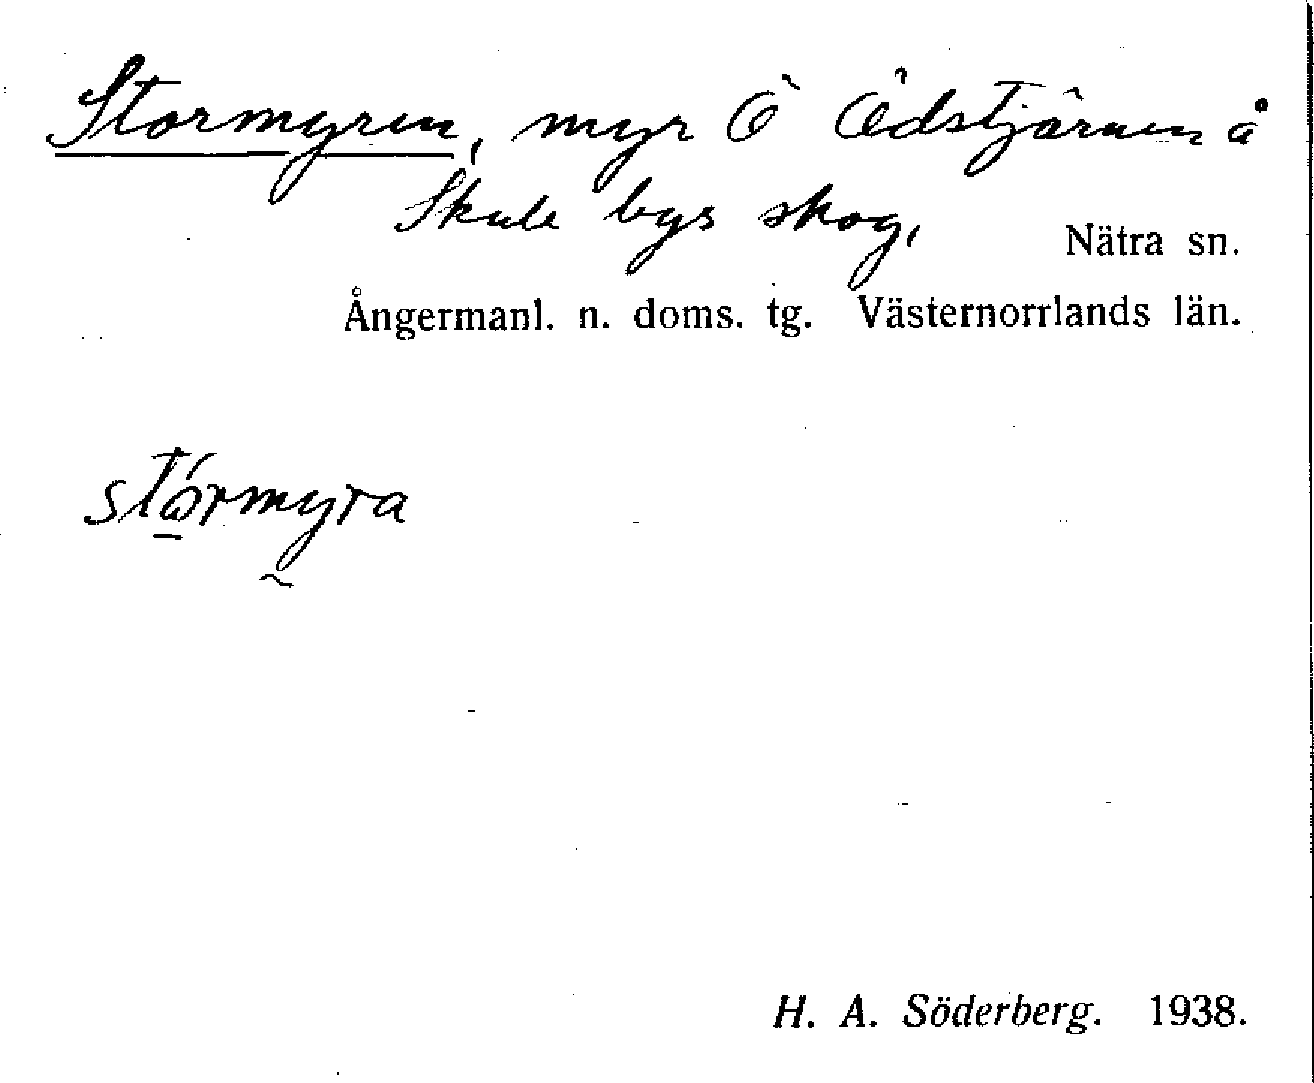 Stormyren, myr Ö Ödstjärnen å
Skule bys skog,
Nätra sn.
Ångermanl. n. doms. tg. Västernorrlands län.
stórmyra
H. A. Söderberg. 1938.